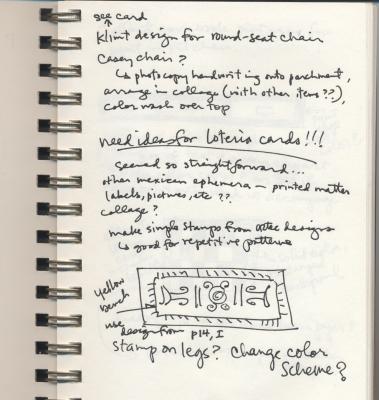 see card
Klint design for round-seat chair
Casey chair?
↳ photocopy handwriting onto parchment,
arrange in collage (with other items??),
color wash over top
need ideas for loteria cards!!!
seemed so straightforward...
other mexican ephemera — printed matter
labels, pictures, etc ??
collage?
make simple stamps from aztec designs
↳ good for repetitive patterns
yellow
bench
use
design from p14, I
stamp on legs? Change color
scheme?